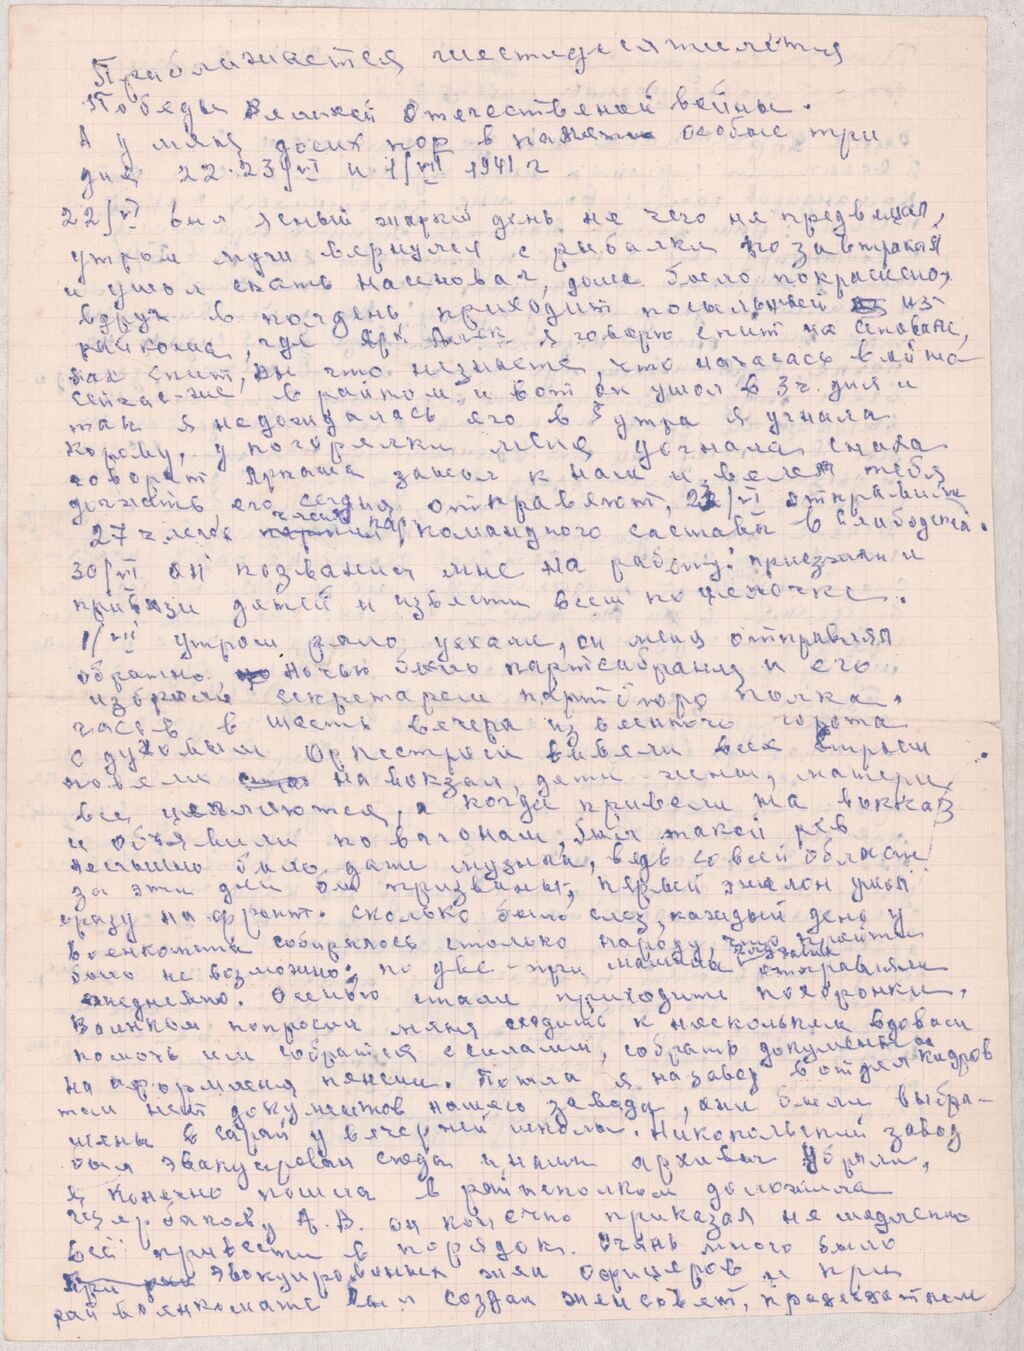 Приближается шестидесятилетия
Победы Великой Отечественой войны.
А у меня досих пор в памяти особые три
дня 22-23/VI и 1/VII 1941 г
22/VI был ясный жаркий день не чего не предвещал,
утром муж вернулся с рыбалки позавтракал
и ушол спать насеновал, дома было покрашено,
вдруг в полдень приходит посыльный из
райкома, где я говорю спит на сеновале,
как спит, вы что незнаете, что началась война
сейчас-же в райком и вот он ушол в 3 ч. дня и
так я недождалась его в 5 утра я угнала
корову, у погорелки меня догнала сноха
говорит Аркаша зашол к нам и велел тебя
догнать его сегодня отправляют, 23/VI отправили
27 члена парт командного состава в Слободской.
30/VI он позванил мне на работу: приезжай и
привези детей и извести всех по цепочке.
1/VII утром рано уехали, он меня отправлял
обратно ночью было партсобрания и его
избрали секретарем партбюро полка.
часов в шесть вечера из военного городка
с духовым Оркестром вывели всех строем
повели на вокзал, дети жены, матери
все цепляются, а когда привели на вокзал
и объявили по вагонам, был такой рёв
неслышно было даже музыки, ведь со всей области
за эти дни были призваны, первый эшелон ушол
сразу на фронт. сколько было слез, каждый день у
военкомата собиралось столько народу, что пройти
было не возможно, по две-три машины отправляли
ежедневно. Осенью стали приходить похоронки,
Военком попросил меня сходить к нескольким вдовам
помочь им собратся с силами, собрать документы
на оформления пенсии. Пошла я на завод в отдел кадров
там нет документов нашего завода, они были выбро-
шены в сарай у вечерней школы. Никопольский завод
был эвакуирован сюда и наши архивы убрали,
я конечно пошла в райисполком доложила
Щербакову А.В. он конечно приказал не медленно
всё привести в порядок. Очень много было
эвакуированых жён офицеров и при
рай воянкомате был создан женсовет, председателем